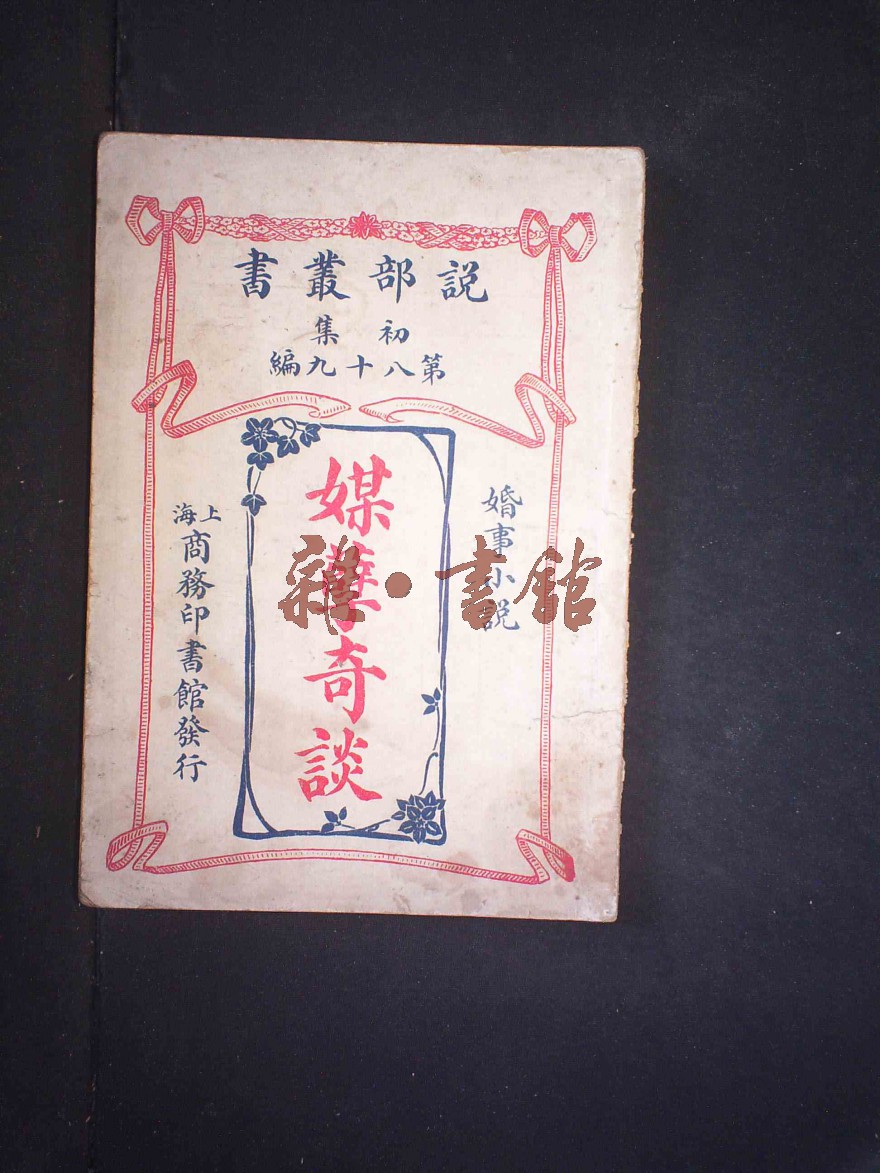 説部叢書
初集
第八十九編
婚事小説
媒孽奇談
上海商務印書館發行
雜·書館